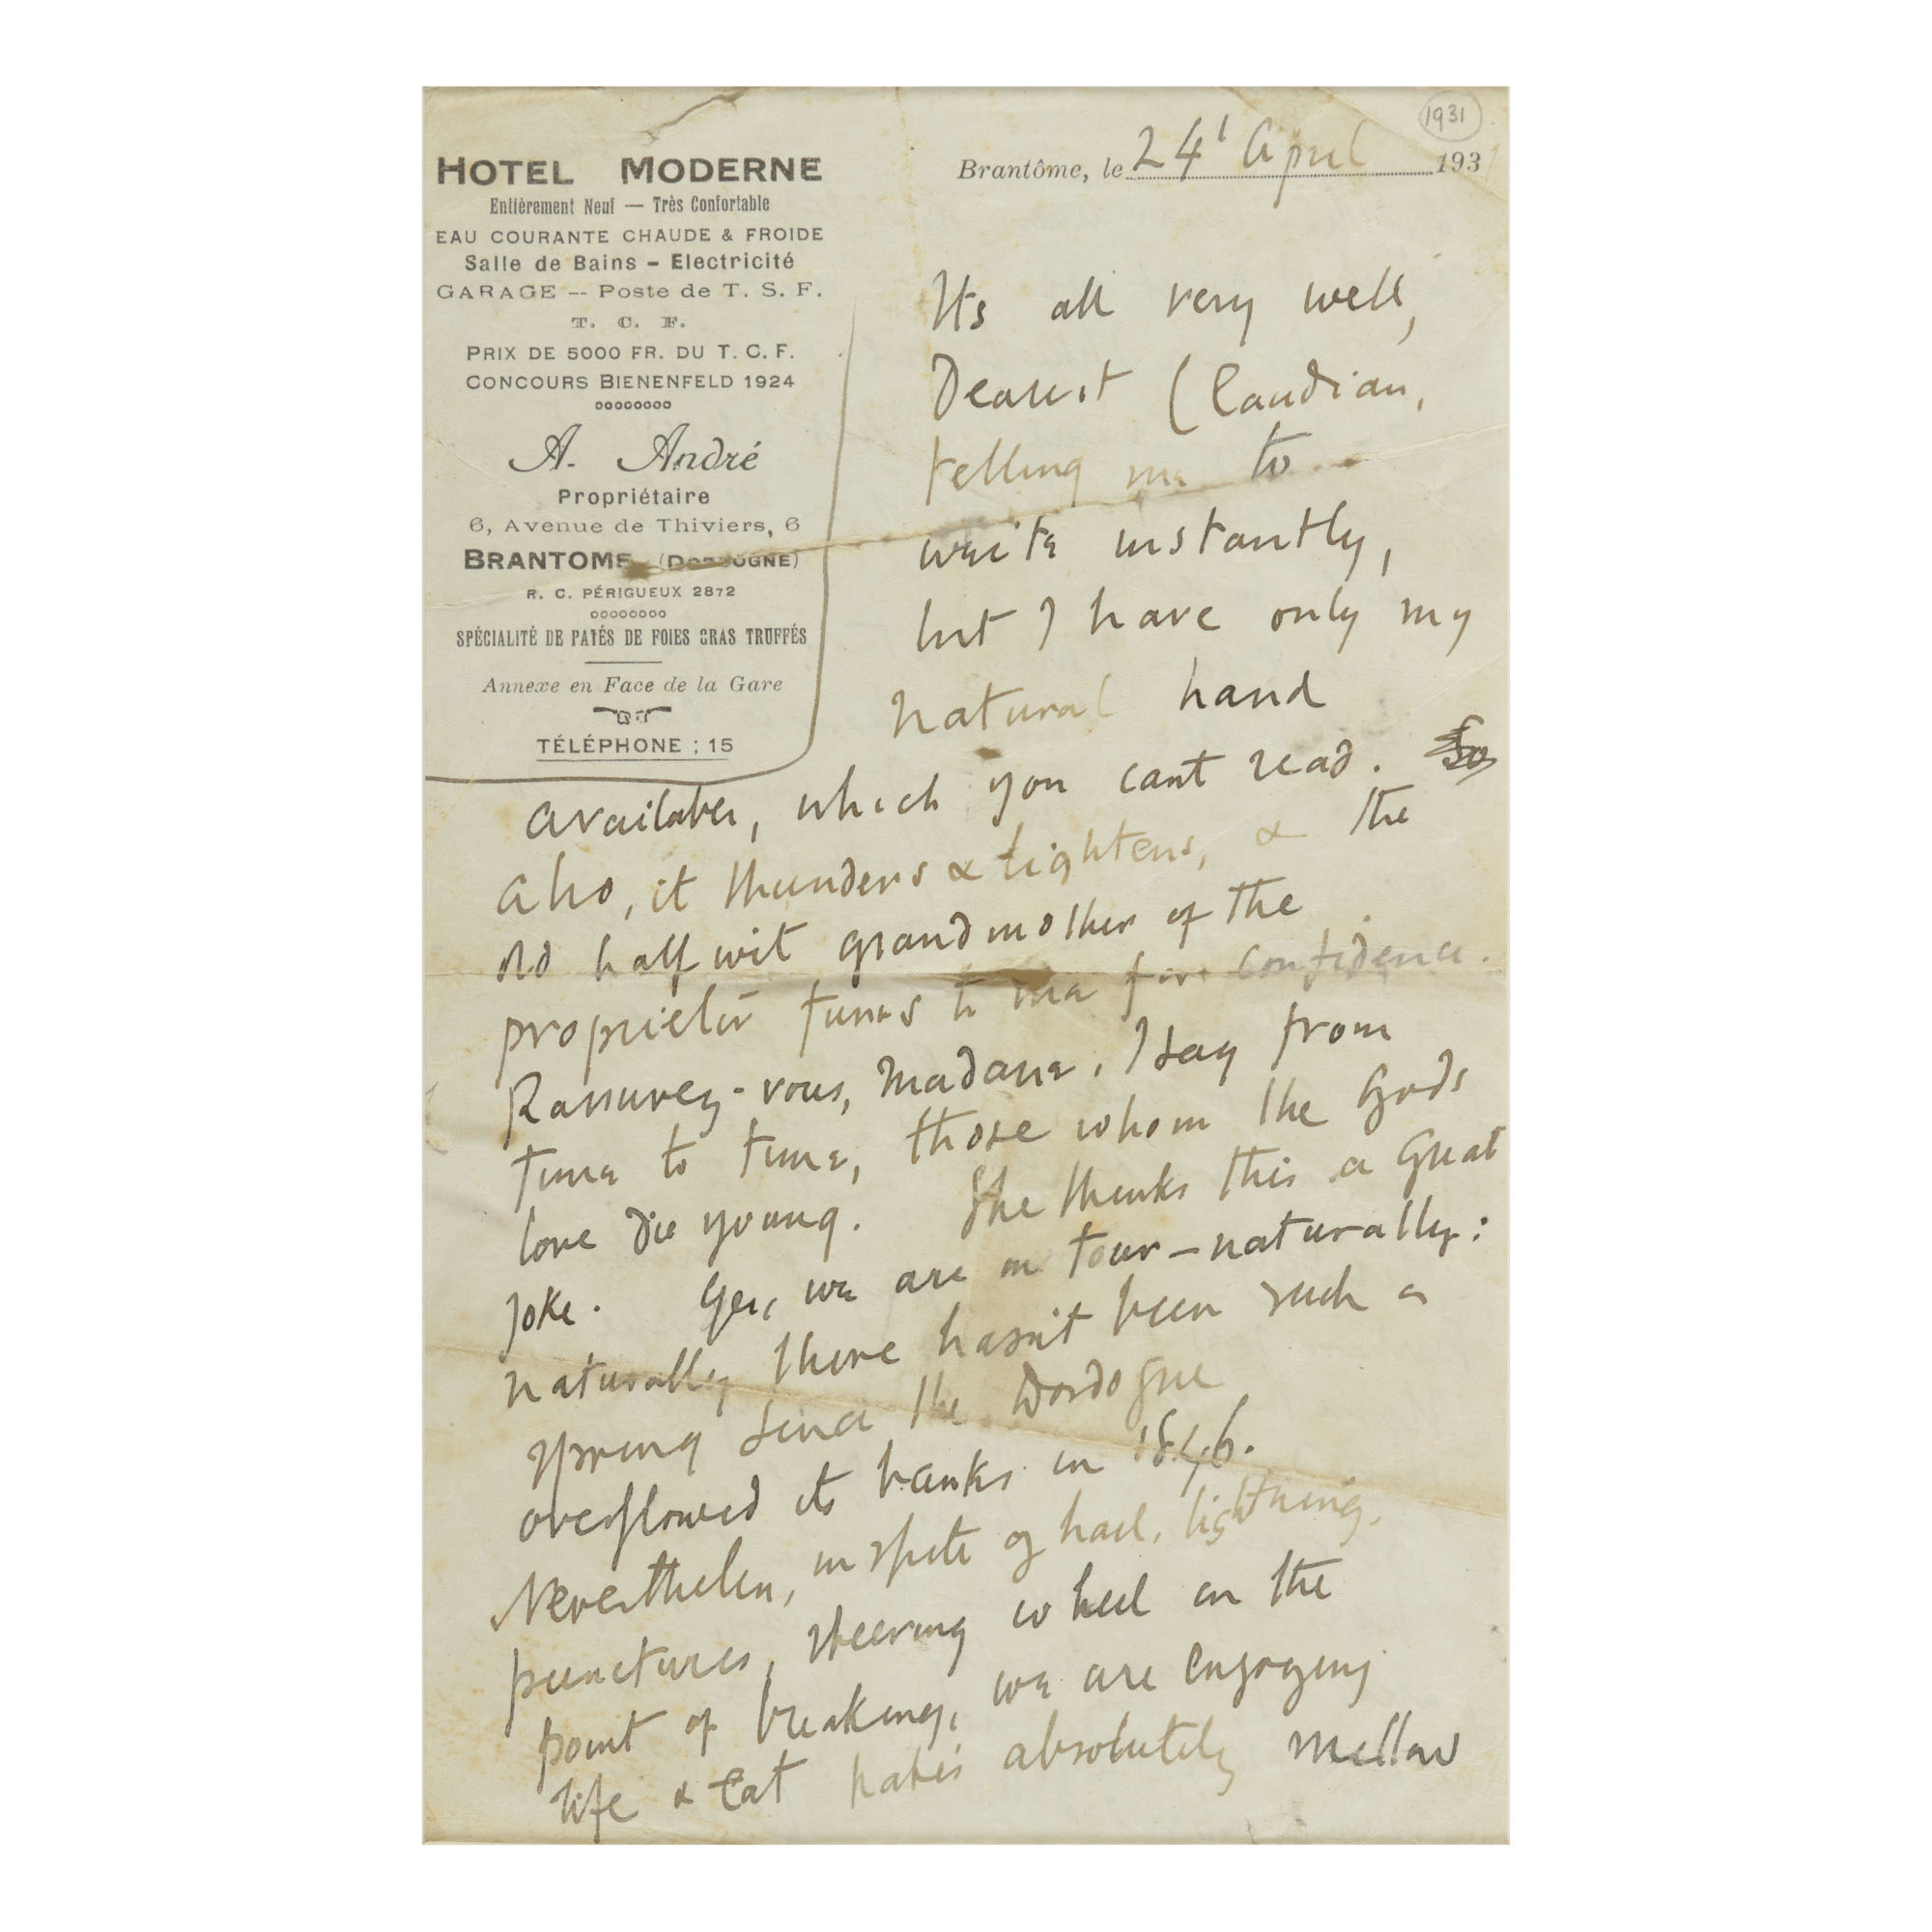 1931
HOTEL MODERNE
Entièrement Neuf — Très Confortable
EAU COURANTE CHAUDE & FROIDE
Salle de Bains - Electricité
GARAGE -- Poste de T. S. F.
T. C. F.
PRIX DE 5000 FR. DU T. C. F.
CONCOURS BIENENFELD 1924
A. André
Propriétaire
6, Avenue de Thiviers, 6
BRANTOME (DORDOGNE)
R. C. PÉRIGUEUX 2872
SPÉCIALITÉ DE PATÉS DE FOIES GRAS TRUFFÉS
Annexe en Face de la Gare
TÉLÉPHONE : 15
Brantôme, le 24t April 193
Its all very well,
Dearest (Claudian,
telling me to
write instantly,
but I have only my
natural hand
available, which you cant read. So
also, it thunders & lightens, & the
old half wit grandmother of the
proprietor turns to me for confidence.
Rassurez-vous, Madame, I say from
time to time, those whom the Gods
love die young. She thinks this a great
joke. Yes, we are on tour - naturally:
naturally there hasn't been such a
spring since the Dordogne
overflowed its banks in 1846.
Nevertheless, in spite of hail, lightning,
punctures, steering wheel on the
point of breaking, we are enjoying
life & eat patés absolutely mellow